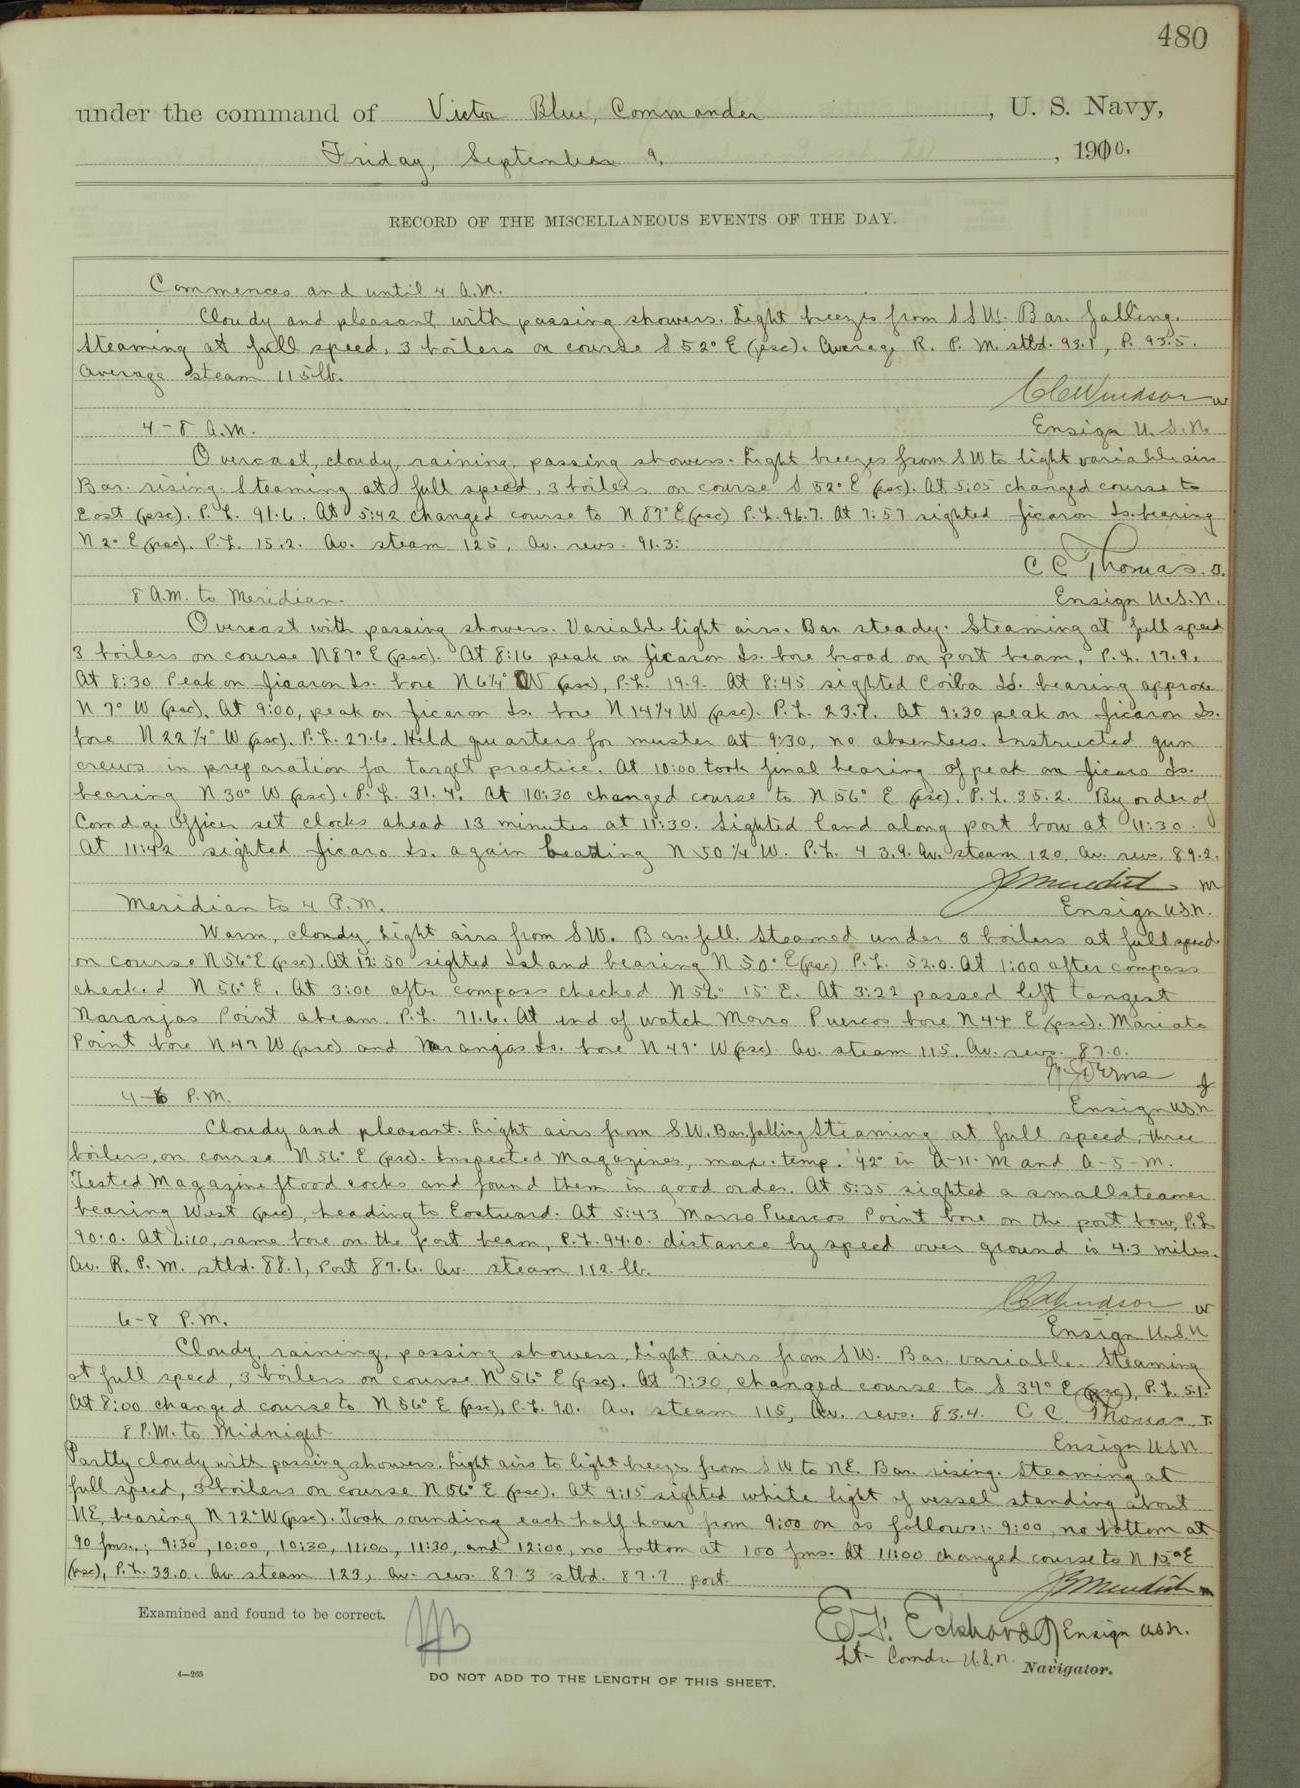 480
under the command of Victor Blue, Commander, U. S. Navy,
Friday, September 9, 1910.
RECORD OF THE MISCELLANEOUS EVENTS OF THE DAY.
Commences and until 4 A.M.
Cloudy and pleasant with passing showers. Light breezes from SSW. Bar. falling.
Steaming at full speed, 3 boilers on course S 52° E (psc). Average R. P. M. stbd. 93.1, P. 93.5.
Average steam 115 lb.
Windsor W
4-8 A.M. Ensign U.S.N.
Overcast, cloudy, raining, passing showers. Light breezes from SW to light variable airs
Bar. rising. Steaming at full speed, 3 boilers on course S 52° E (psc). At 5:05 changed course to
East (psc). P.L. 91.6. At 5:42 changed course to N 87° E (psc) P.L. 96.7. At 7:57 sighted Jicaron Is. bearing
N 2° E (psc). P.L. 15.2. Av. steam 125, Av. revs. 91.3.
C C Thomas. J.
8 A.M. to Meridian. Ensign U.S.N.
Overcast with passing showers. Variable light airs. Bar. steady. Steaming at full speed
3 boilers on course N 87° E (psc). At 8:16 peak on Jicaron Is. bore broad on port beam, P.L. 17.9.
At 8:30 Peak on Jicaron Is. bore N 6¼° W (psc), P.L. 19.9. At 8:45 sighted Coiba Id. bearing approx
N 7° W (psc). At 9:00, peak on Jicaron Is. bore N 14¼ W (psc). P.L. 23.7. At 9:30 peak on Jicaron Is.
bore N 22¼° W (psc). P.L. 27.6. Held quarters for muster at 9:30, no absentees. Instructed gun
crews in preparation for target practice. At 10:00 took final bearing of peak on Jicaro Is.
bearing N 30° W (psc). P.L. 31.4. At 10:30 changed course to N 56° E (psc). P.L. 35.2. By order of
Comdg. Officer set clocks ahead 13 minutes at 11:30. Sighted land along port bow at 11:30.
At 11:42 sighted Jicaro Is. again bearing N 50¼ W. P.L. 43.9. Av. steam 120, Av. revs. 89.2.
M
Meridian to 4 P.M. Ensign U.S.N.
Warm, cloudy. Light airs from SW. Bar. fell. Steamed under 3 boilers at full speed
on course N 56° E (psc). At 12:50 sighted Island bearing N 50° E (psc) P.L. 52.0. At 1:00 after compass
checked N 56° E. At 3:00 after compass checked N 56° 15' E. At 3:22 passed left tangent
Naranjas Point abeam. P.L. 71.6. At end of watch Morro Puercos bore N 44° E (psc). Mariato
Point bore N 47 W (psc) and Naranjas Is. bore N 49° W (psc). Av. steam 115. Av. revs. 87.0.
4-6 P.M. Ensign U.S.N.
Cloudy and pleasant. Light airs from SW. Bar. falling. Steaming at full speed, three
boilers, on course N 56° E (psc). Inspected Magazines, max. temp. 92° in A-11-M and A-5-M.
Tested Magazine flood cocks and found them in good order. At 5:35 sighted a small steamer
bearing West (psc), heading to Eastward. At 5:43 Morro Puercos Point bore on the port bow, P.L.
90.0. At 6:10, same bore on the port beam, P.L. 94.0. distance by speed over ground is 4.3 miles.
Av. R. P. M. stbd. 88.1, Port 87.6. Av. steam 112 lb.
Windsor W
6-8 P.M. Ensign U.S.N
Cloudy, raining, passing showers. Light airs from SW. Bar. variable. Steaming
at full speed, 3 boilers on course N 56° E (psc). At 7:30, changed course to S 34° E (psc), P.L. 5.1.
At 8:00 changed course to N 56° E (psc), P.L. 9.0. Av. steam 115, Av. revs. 83.4. C C. Thomas J.
8 P.M. to Midnight Ensign U.S.N
Partly cloudy with passing showers. Light airs to light breezes from SW to NE. Bar. rising. Steaming at
full speed, 3 boilers on course N 56° E (psc). At 9:15 sighted white light of vessel standing about
NE, bearing N 72° W (psc). Took sounding each half hour from 9:00 on as follows:- 9:00, no bottom at
90 fms.; 9:30, 10:00, 10:30, 11:00, 11:30, and 12:00, no bottom at 100 fms. At 11:00 changed course to N E
(psc), P.L. 33.0. Av. steam 123, Av. revs. 87.3 stbd. 87.7 port.
Examined and found to be correct.
E. F. Eckhardt Ensign U.S.N.
Lt-Comdr U.S.N. Navigator.
4—265
DO NOT ADD TO THE LENGTH OF THIS SHEET.